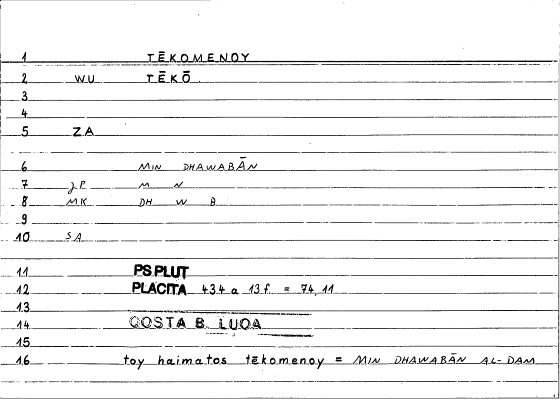 1 TĒKOMENOY
2 WU TĒKŌ
3
4
5 ZA
6 MIN DHAWABĀN
7 M N
8 MK DH W B
9
10 SA
11 PS PLUT
12 PLACITA 434 a 13 f. = 74,11
13
14 QOSTA B. LUQA
15
16 toy haimatos tēkomenoy = MIN DHAWABĀN AL-DAM